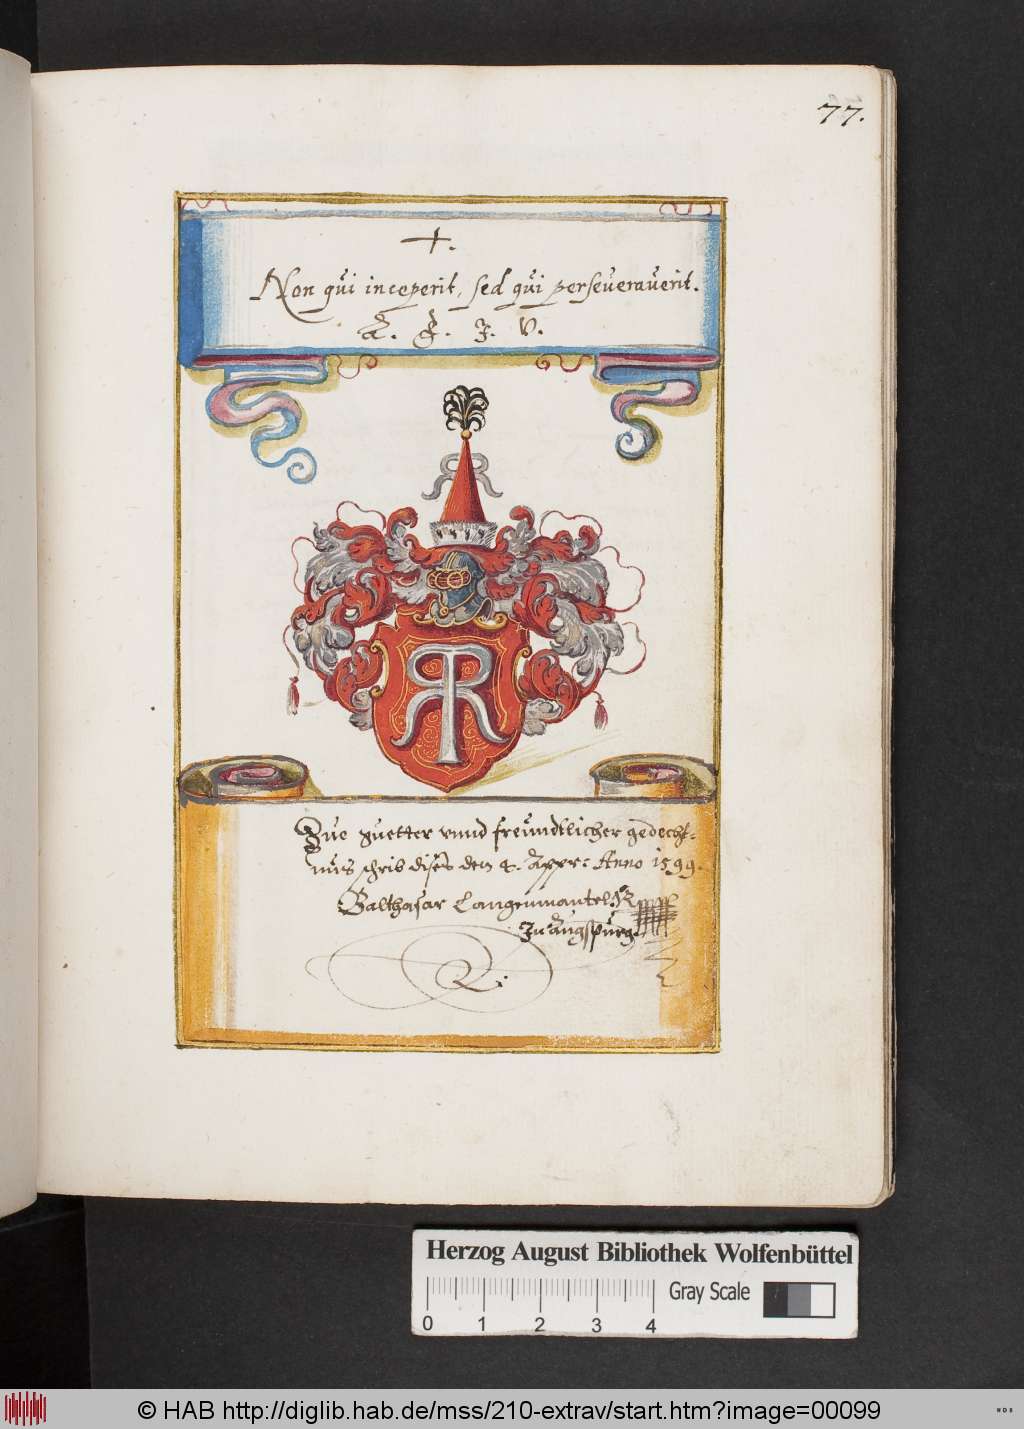 77.
+.
Non qui inceperit, sed qui perseverauerit.
J. V.
Zue guetter vnnd freundtlicher gedecht-
nus schrib dises den 4. Appr: Anno 1599.
Balthasar Langenmantel.
Jn Augspurg.
Herzog August Bibliothek Wolfenbüttel
Gray Scale
0 1 2 3 4
© HAB http://diglib.hab.de/mss/210-extrav/start.htm?image=00099